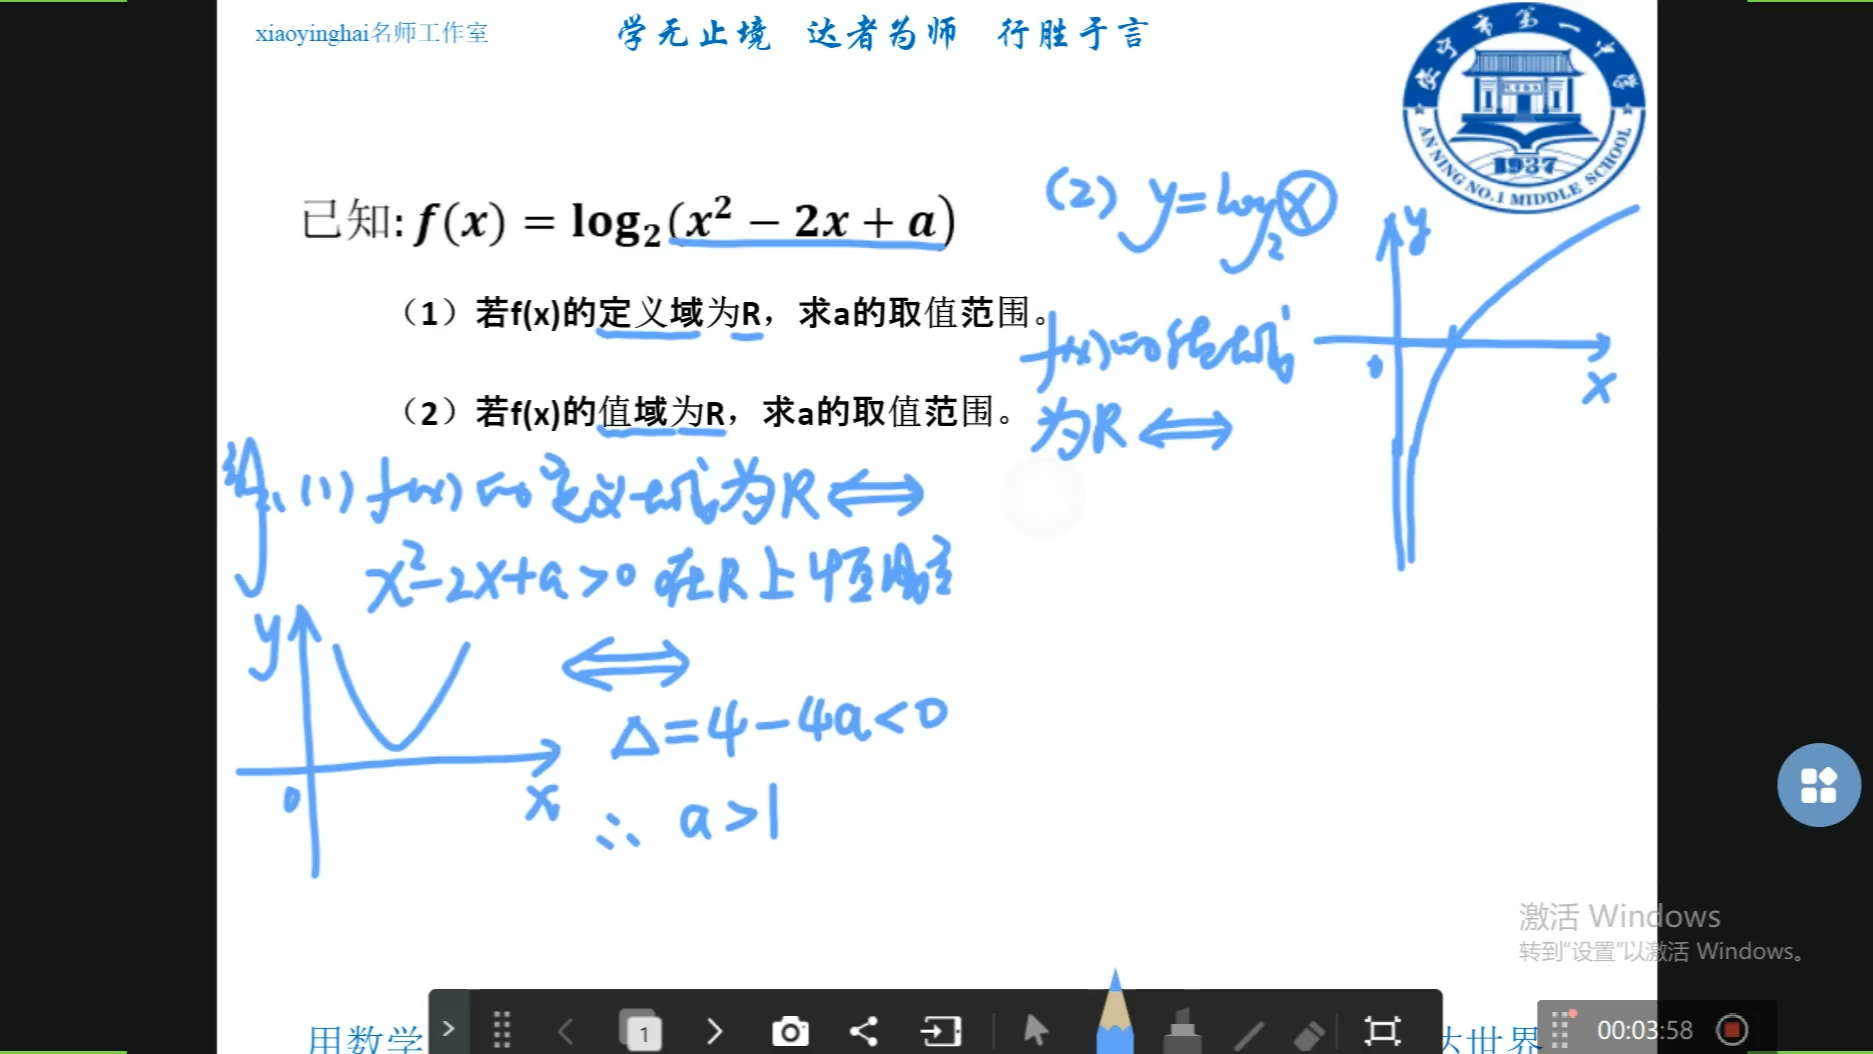 xiaoyinghai名师工作室
学无止境 达者为师 行胜于言
安宁市第一中学
1937
ANNING NO.1 MIDDLE SCHOOL
已知: f(x) = log₂(x² − 2x + a)
（1）若f(x)的定义域为R，求a的取值范围。
（2）若f(x)的值域为R，求a的取值范围。
解:(1) f(x)的定义域为R ⟺
x²-2x+a>0 在R上恒成立
⟺
Δ=4-4a<0
∴ a>1
y
0
x
(2) y=log₂x
f(x)的值域
为R ⟺
y
0
x
激活 Windows
转到“设置”以激活 Windows。
用数学
达世界
1
00:03:58